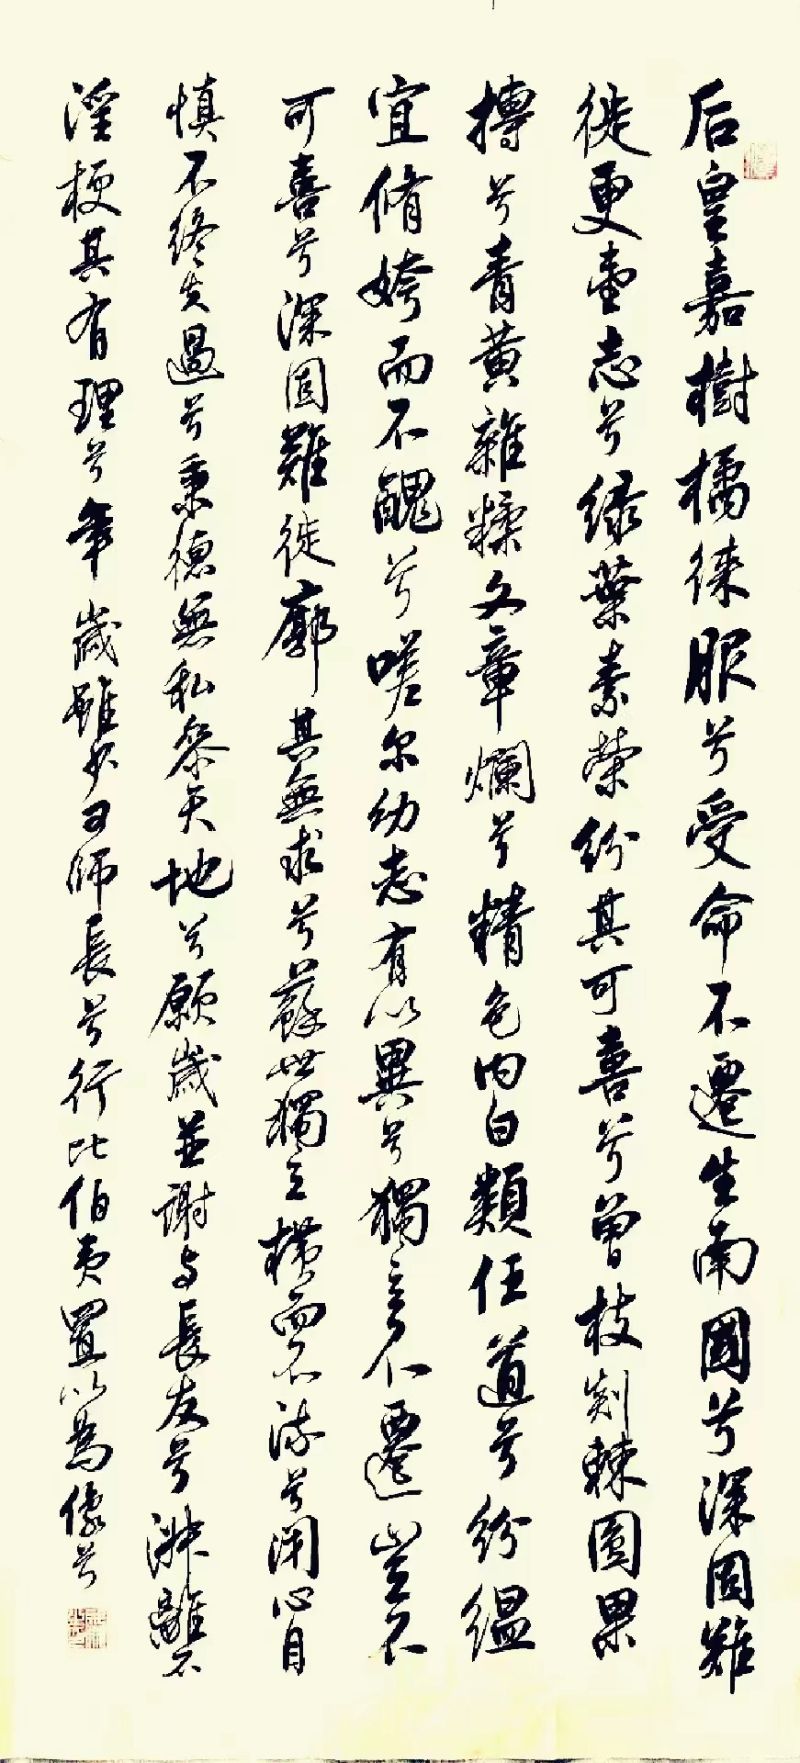 后皇嘉樹橘徠服兮受命不遷生南國兮深固難
徙更壹志兮緑葉素榮紛其可喜兮曾枝剡棘圓果
摶兮青黄雜糅文章爛兮精色内白類任道兮紛緼
宜脩姱而不醜兮嗟尔幼志有以異兮獨立不遷豈不
可喜兮深固難徙廓其無求兮蘇世獨立横而不流兮闭心自
慎不终失過兮秉德無私叅天地兮願歲並謝与長友兮淑離不
淫梗其有理兮年歲雖少可師長兮行比伯夷置以為像兮